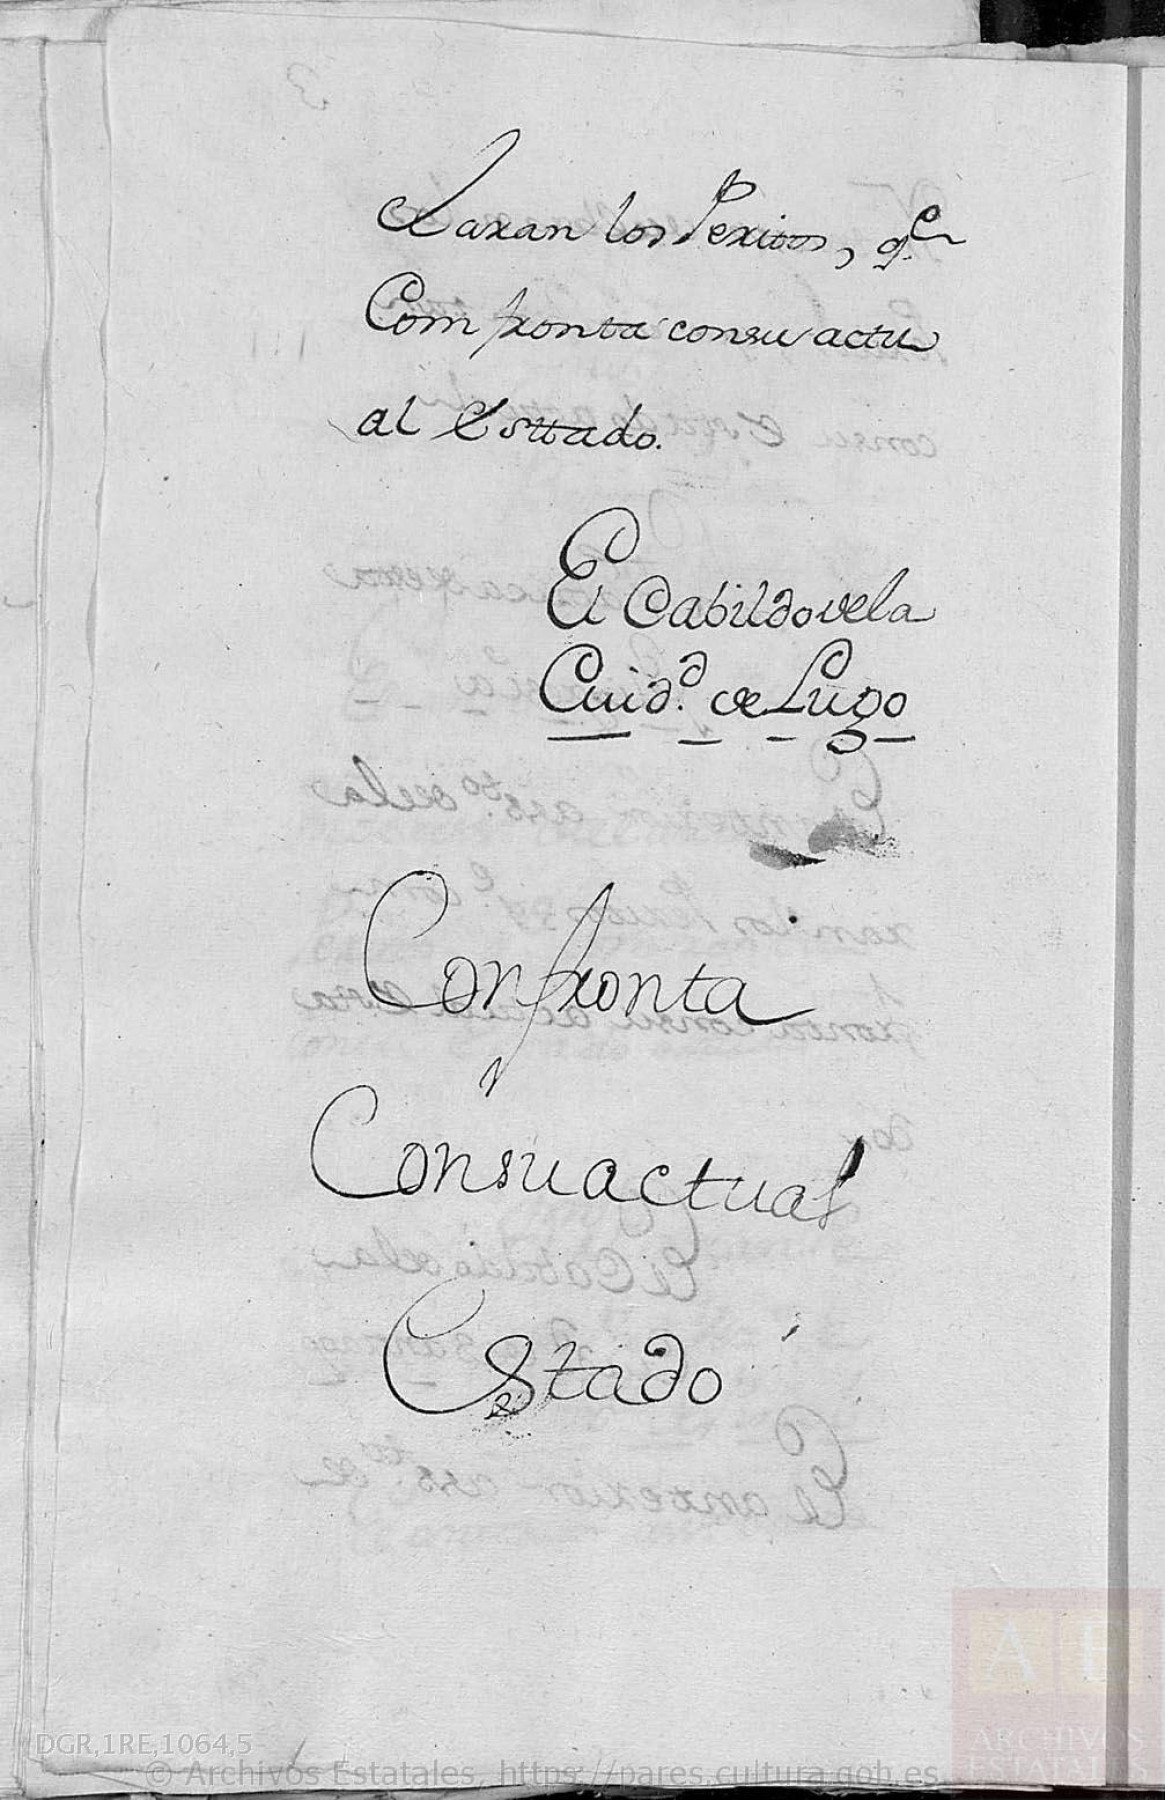 claran los Peritos, q.e
Comfronta consu actu
al Esttado.
El Cabildo dela
Cuid.d de Lugo
Confronta
Consu actual
Estado
DGR,1RE,1064,5
© Archivos Estatales, https://pares.cultura.gob.es
AE
ARCHIVOS
ESTATALES